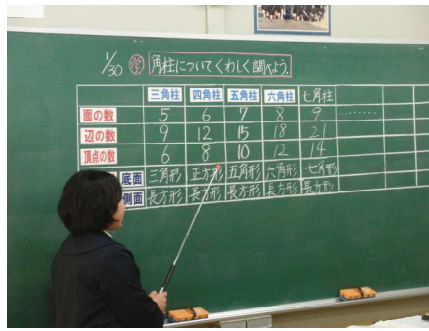 1/30 学 角柱についてくわしく調べよう。
三角柱 四角柱 五角柱 六角柱 七角柱
面の数 5 6 7 8 9 ………
辺の数 9 12 15 18 21
頂点の数 6 8 10 12 14
底面 三角形 正方形 五角形 六角形 七角形
側面 長方形 長方形 長方形 長方形 長方形